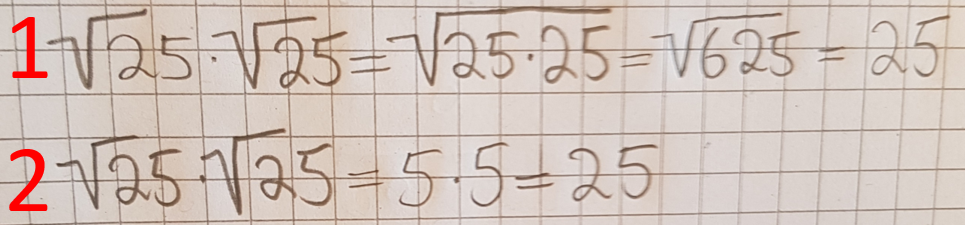 1 √25·√25=√(25·25)=√625=25
2 √25·√25=5·5=25